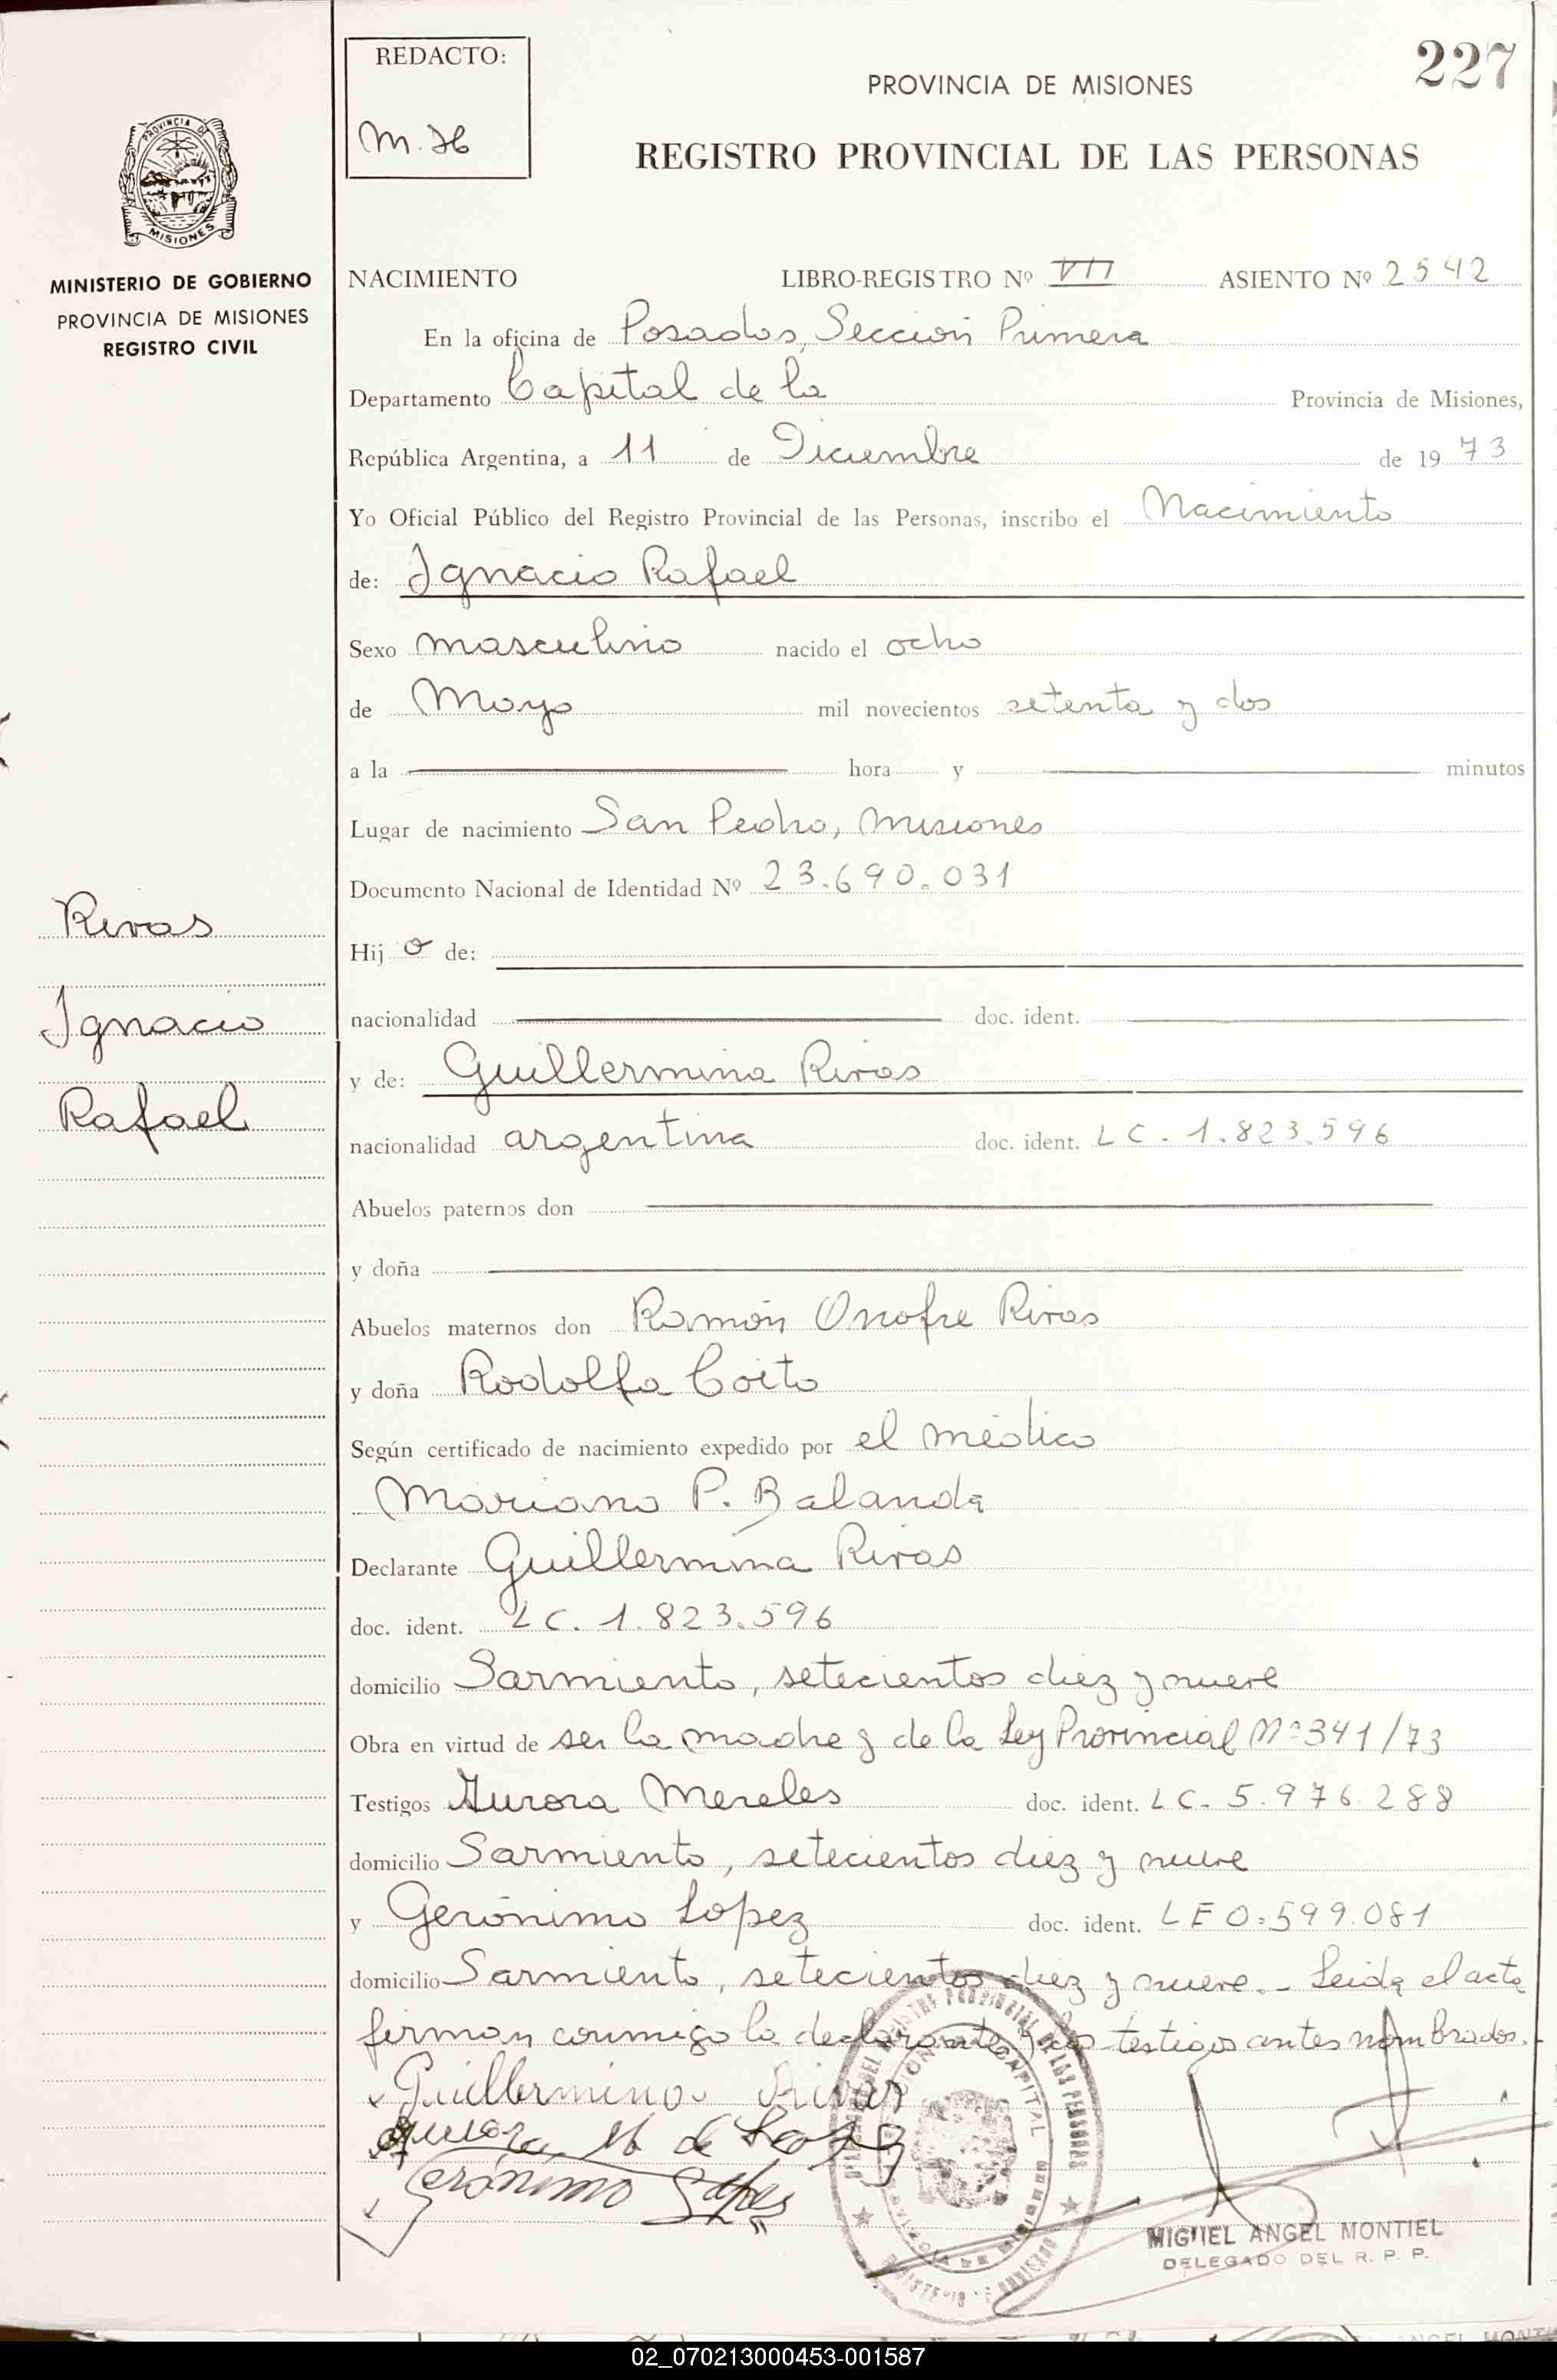 227
REDACTO:
M. H
PROVINCIA DE MISIONES
REGISTRO PROVINCIAL DE LAS PERSONAS
PROVINCIA DE
MISIONES
MINISTERIO DE GOBIERNO
PROVINCIA DE MISIONES
REGISTRO CIVIL
NACIMIENTO LIBRO-REGISTRO Nº VII ASIENTO Nº 2542
En la oficina de Posadas, Sección Primera
Departamento Capital de la Provincia de Misiones,
República Argentina, a 11 de Diciembre de 1973
Yo Oficial Público del Registro Provincial de las Personas, inscribo el Nacimiento
de: Ignacio Rafael
Sexo masculino nacido el ocho
de Mayo mil novecientos setenta y dos
a la hora y minutos
Lugar de nacimiento San Pedro, Misiones
Documento Nacional de Identidad Nº 23.690.031
Rivas
Ignacio
Rafael
Hijo de:
nacionalidad doc. ident.
y de: Guillermina Rivas
nacionalidad argentina doc. ident. LC. 1.823.596
Abuelos paternos don
y doña
Abuelos maternos don Ramón Onofre Rivas
y doña Rodolfa Coito
Según certificado de nacimiento expedido por el médico
Mariano P. Balanda
Declarante Guillermina Rivas
doc. ident. LC. 1.823.596
domicilio Sarmiento, setecientos diez y nueve
Obra en virtud de ser la madre y de la Ley Provincial Nº 341/73
Testigos Aurora Mereles doc. ident. LC. 5.976.288
domicilio Sarmiento, setecientos diez y nueve
y Gerónimo Lopez doc. ident. LE 0.599.081
domicilio Sarmiento, setecientos diez y nueve.- Leida el acta
firman conmigo la declarante y los testigos antes nombrados.
Guillermina Rivas
Aurora M de Lopez
Gerónimo Lopez
MIGUEL ANGEL MONTIEL
DELEGADO DEL R. P. P.
02_070213000453-001587